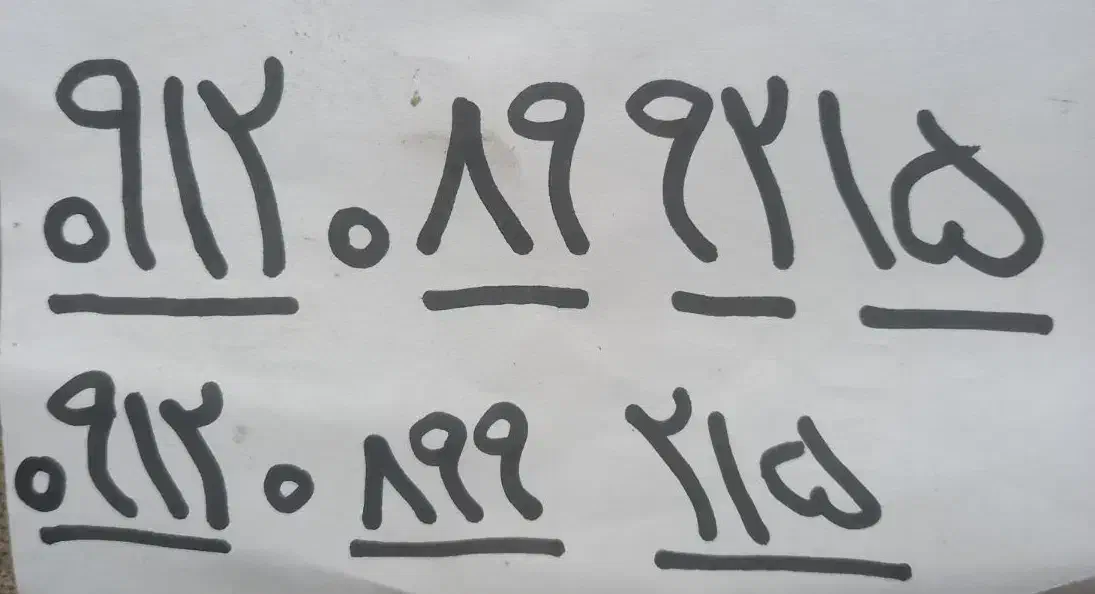 ۰۹۱۲ ۰ ۸۹ ۹۲ ۱۵
۰۹۱۲ ۰ ۸۹۹ ۲۱۵